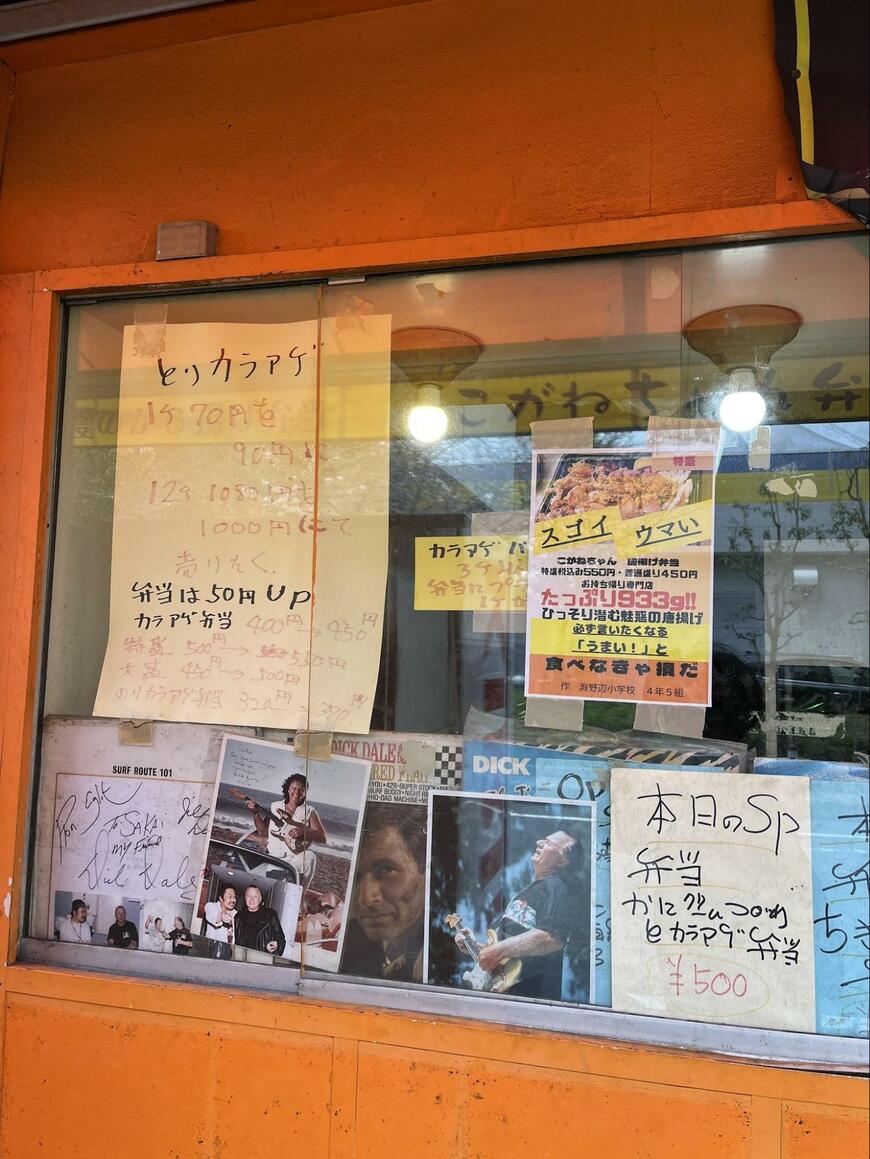 とりカラアゲ
1ケ70円を
90円に
12ケ1080円を
1000円にて
売りたく.
弁当は50円UP
カラアゲ弁当 400円→450円
特盛 500円→550円
大盛 450円→500円
のりカラアゲ弁当 320円→370円
こがねちゃん弁
カラアゲ
3ケ
弁当に
1ケ
特盛
スゴイ ウマい
こがねちゃん 唐揚げ弁当
特盛税込み550円・普通盛り450円
お持ち帰り専門店
たっぷり933g!!
ひっそり潜む魅惑の唐揚げ
必ず言いたくなる
「うまい!」と
食べなきゃ損だ
作 淵野辺小学校 4年5組
SURF ROUTE 101
To SAKAi
My Friend
Dick Dale
DICK DALE
RED FLAG
DICK
本日のSp
弁当
かに
とカラアゲ弁当
¥500